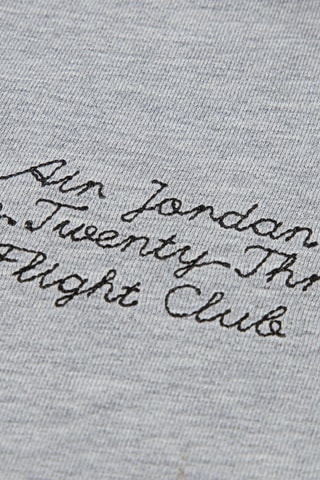 Air Jordan
Twenty Thr
Flight Club